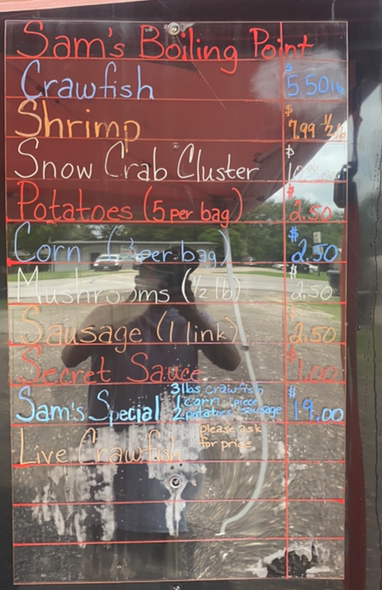 Sam's Boiling Point
Crawfish $5.50 lb
Shrimp $7.99 ½ lb
Snow Crab Cluster $
Potatoes (5 per bag) $2.50
Corn ( per bag) $2.50
Mushrooms (½ lb) $2.50
Sausage (1 link) $2.50
Secret Sauce $1.00
Sam's Special 3lbs crawfish $19.00
1 corn, piece
2 potatoes sausage
Live Crawfish please ask
for price